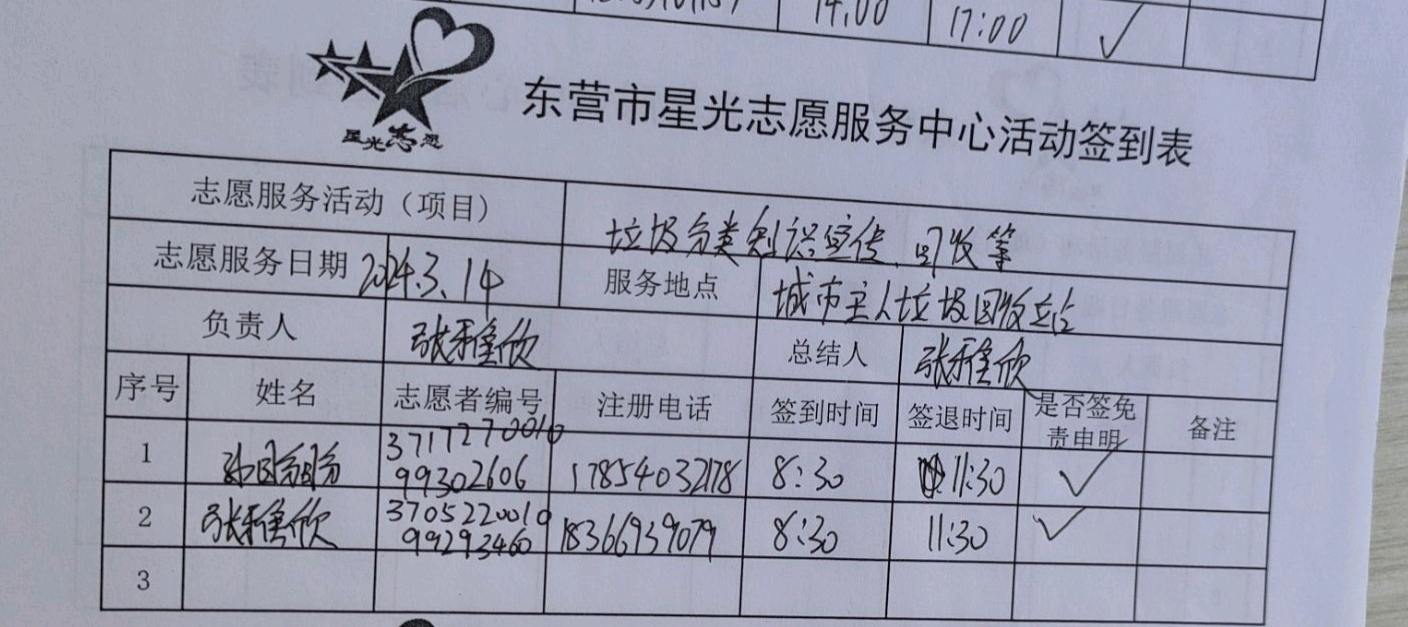 14:00 17:00 ✓
星光志愿
东营市星光志愿服务中心活动签到表
志愿服务活动（项目） 垃圾分类知识宣传、回收等
志愿服务日期 2024.3.14 服务地点 城市主人垃圾回收站
负责人 张雅欣 总结人 张雅欣
序号 姓名 志愿者编号 注册电话 签到时间 签退时间 是否签免责申明 备注
1 371727001099302606 17854032178 8:30 11:30 ✓
2 张雅欣 370522001099293460 18366939079 8:30 11:30 ✓
3